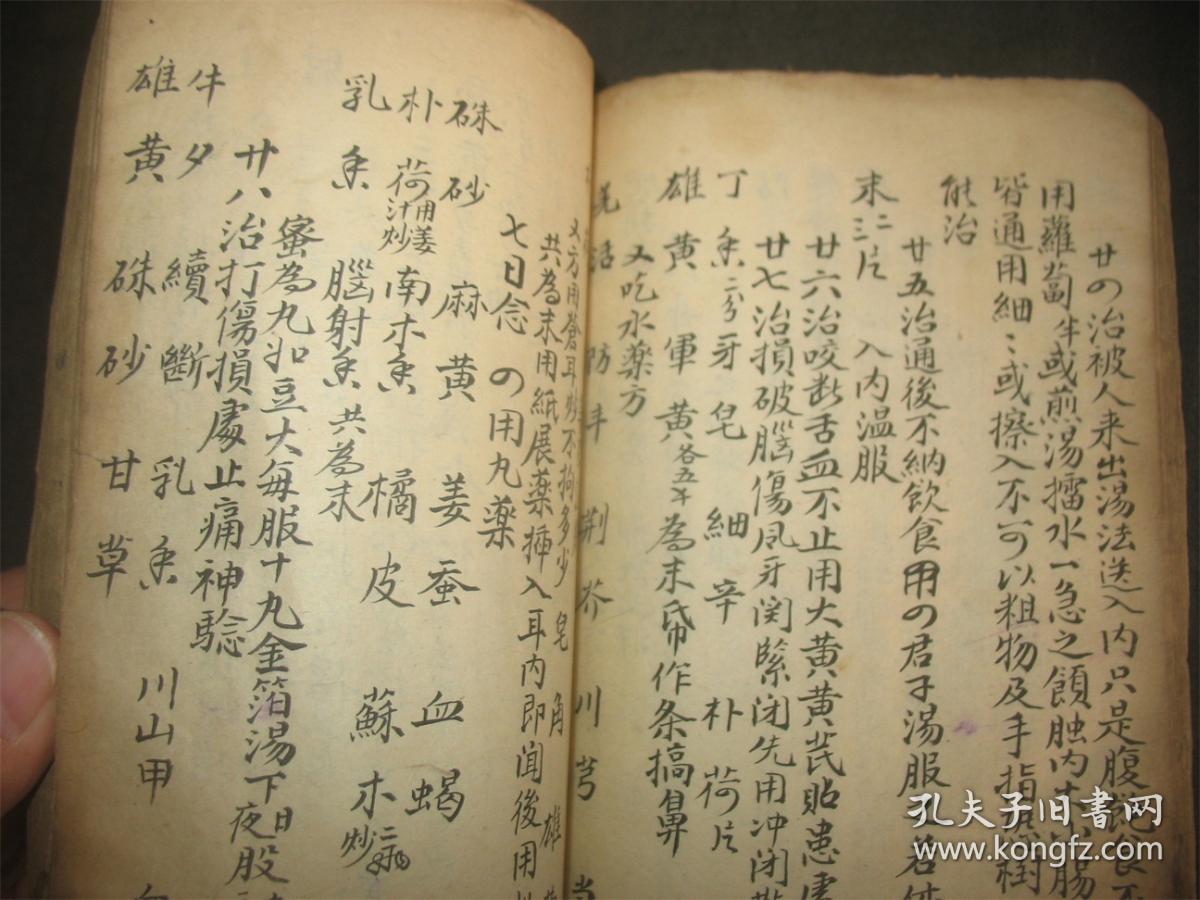 廿の治被人来出湯法送入内只是腹
用蘿蔔
或煎湯擂水一急之
内
皆通用細〻或擦入不可以粗物及手指
能治
廿五治通後不納飲食用の君子湯服
末二三片 入内温服
廿六治咬断舌血不止用大黄黄芪貼患
廿七治損破腦傷风牙関緊闭先用冲闭
丁香二分牙皂 細辛 朴荷片
雄黄 軍黄各五
為末
作条搞鼻
又吃水薬方
荆芥 川芎
又方用蒼耳炒不拘多少 皂角 雄
共為末用紙展薬揷入耳内即闻後用
七日念の用丸薬
硃砂 麻黄 姜蚕 血蝎
朴荷用姜汁炒 南木香 橘皮 蘇木炒
乳香 腦射香 共為末
蜜為丸如豆大每服十丸金箔湯下日夜股
廿八治打傷損處止痛神騐
牛夕 續斷 乳香 川山甲
雄黄 硃砂 甘草
孔夫子旧书网
www.kongfz.com